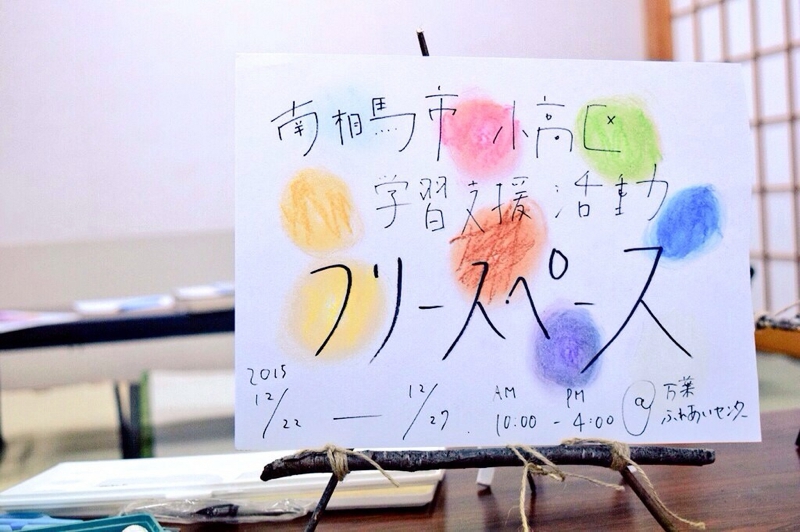 南相馬市小高区
学習支援活動
フリースペース
2015
12/22 — 12/27. AM 10:00 - PM 4:00 @ 万葉ふれあいセンター